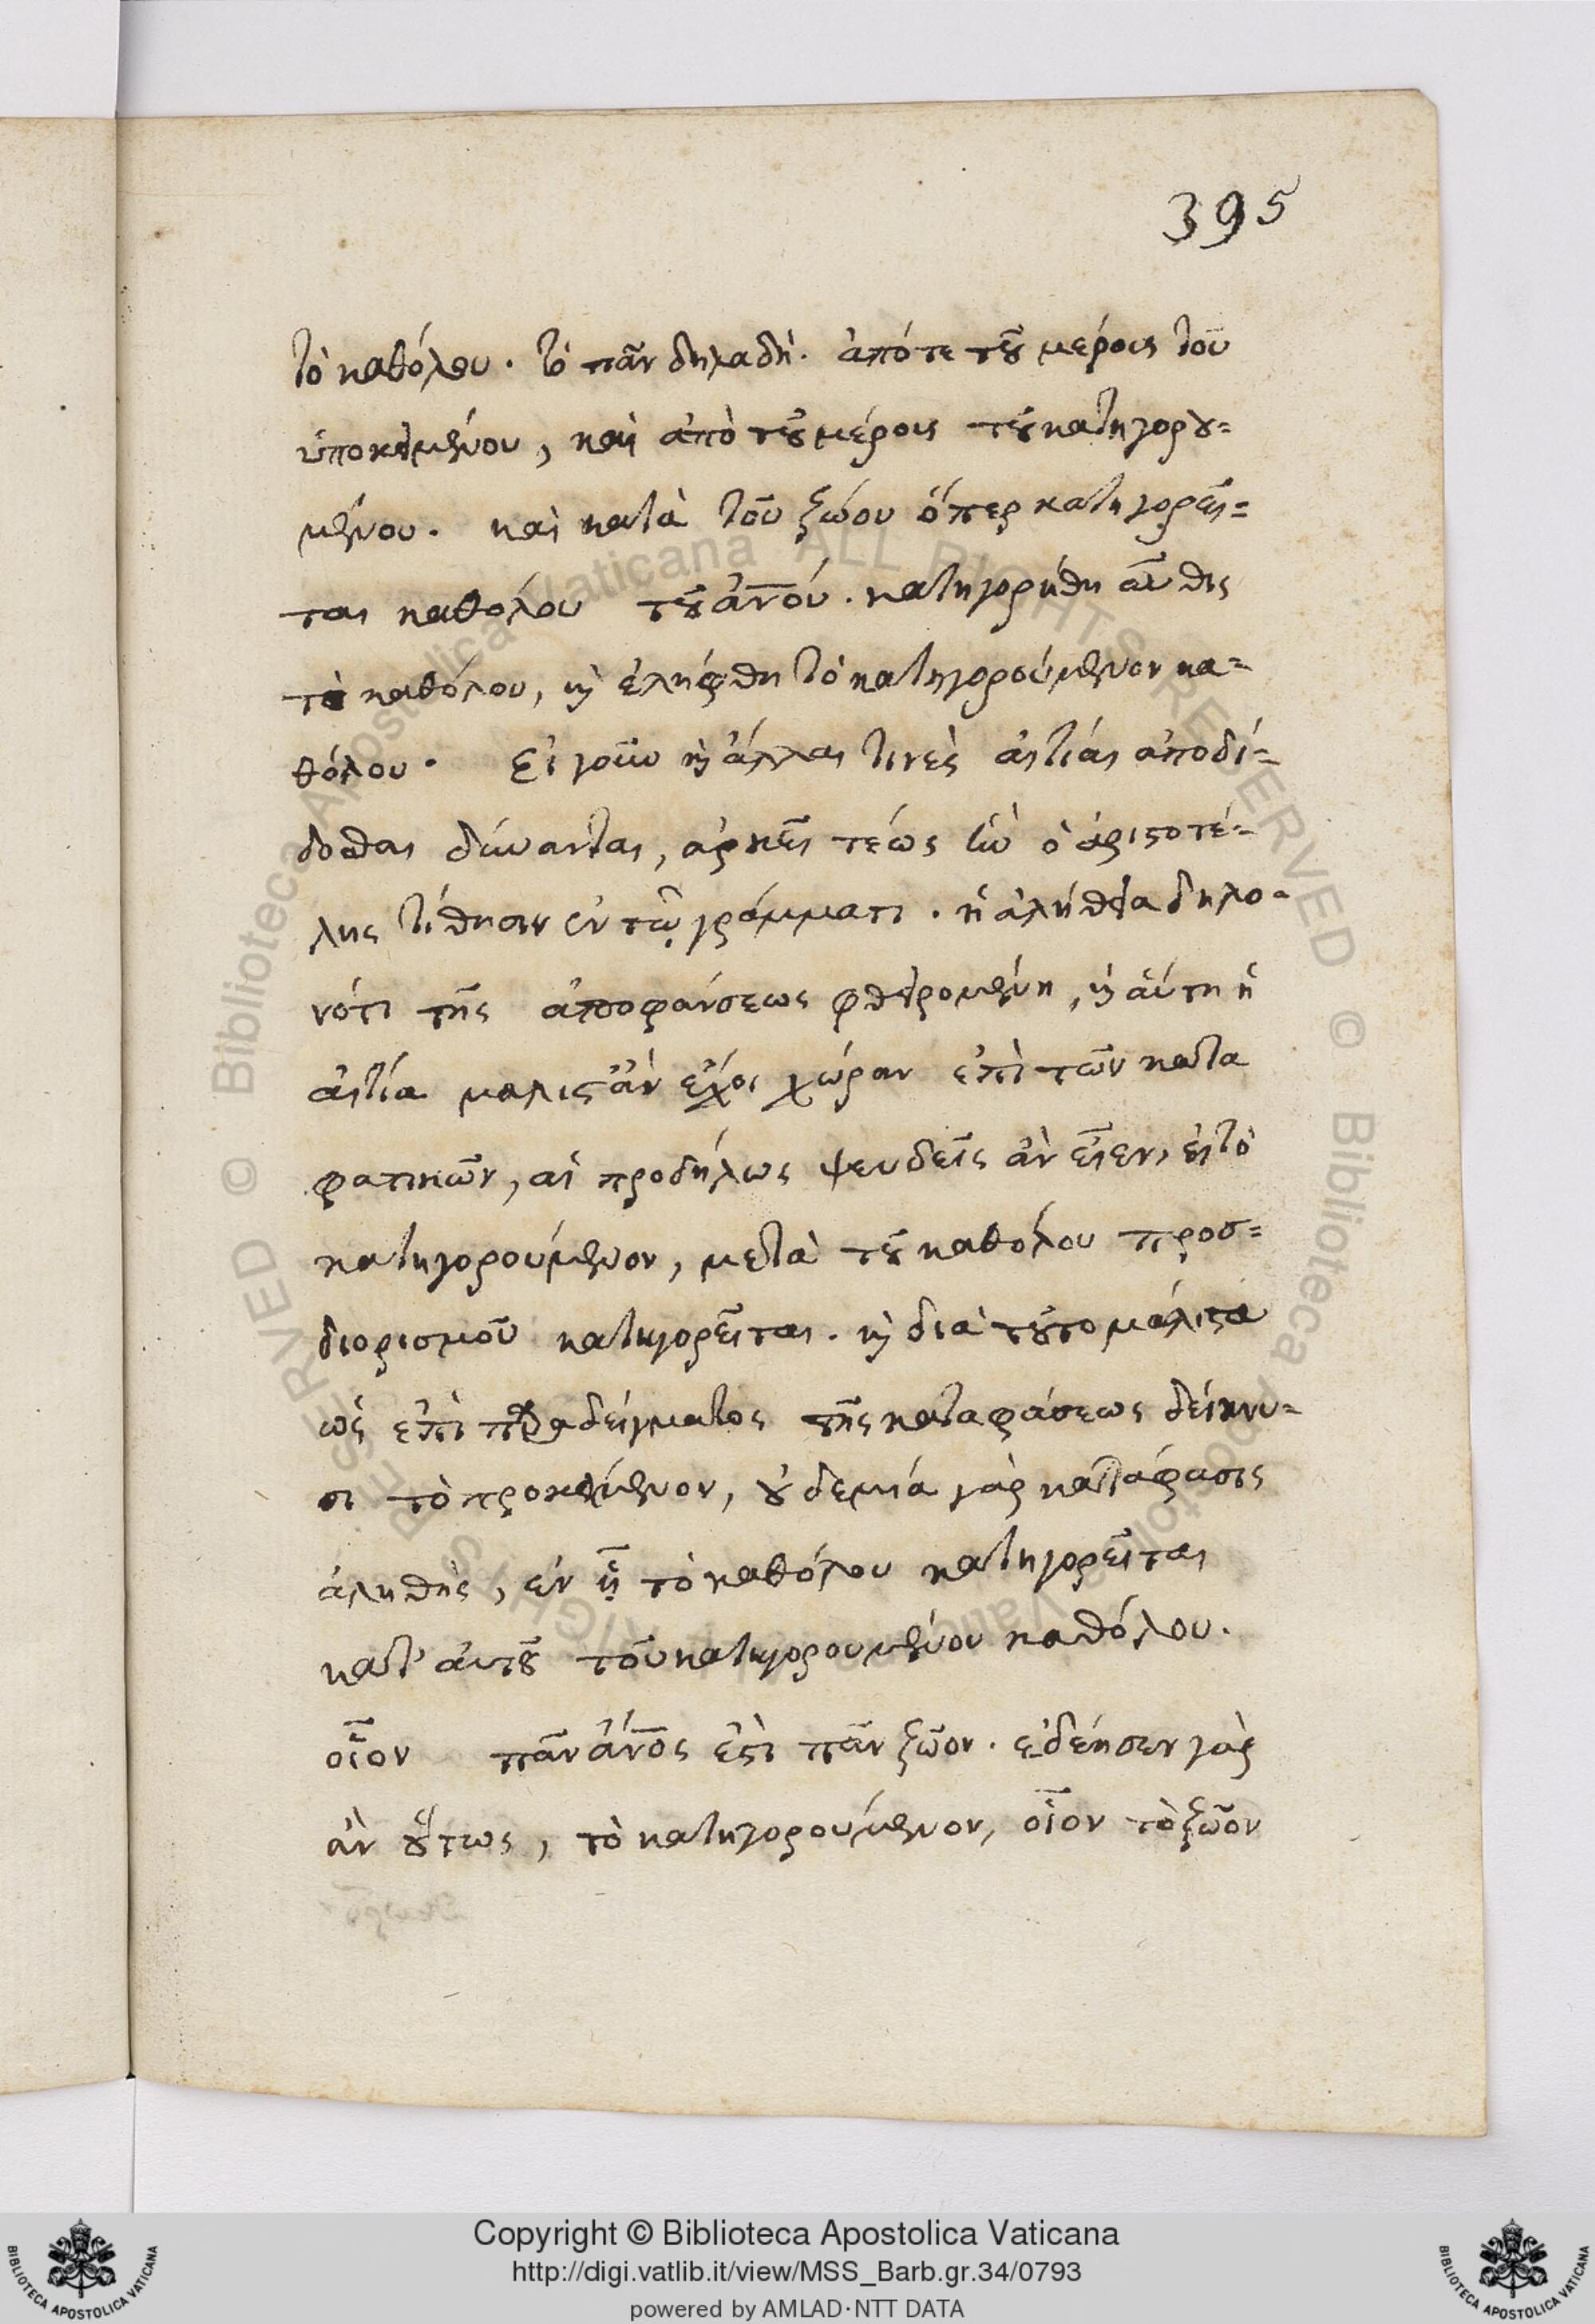 395
τὸ καθόλου. τὸ πᾶν δηλαδή. ἀπό τε τοῦ μέρους τοῦ
ὑποκειμένου, καὶ ἀπὸ τοῦ μέρους τοῦ κατηγορου=
μένου. καὶ κατὰ τοῦ ζώου ὅπερ κατηγορεῖ=
ται καθόλου τοῦ ἀν͞ου. κατηγορήθη αὖθις
τὸ καθόλου, κ̀ ἐλήφθη τὸ κατηγορούμενον κα=
θόλου. εἰ γοῦν κ̀ ἄλλαι τινὲς αἰτίαι ἀποδί=
δοσθαι δύνανται, ἀρκεῖ τέως ἣν ὁ ἀριστοτέ=
λης τίθησιν ἐν τῷ γράμματι. ἡ ἀλήθεια δηλο=
νότι τῆς ἀποφάνσεως φθειρομένη, κ̀ αὕτη ἡ
αἰτία μάλιστ' ἂν ἔχοι χώραν ἐπὶ τῶν κατα
φατικῶν, αἳ προδήλως ψευδεῖς ἂν εἶεν, εἰ τὸ
κατηγορούμενον, μετὰ τοῦ καθόλου προσ=
διορισμοῦ κατηγορεῖται. κ̀ διὰ τοῦτο μάλιστα
ὡς ἐπὶ παραδείγματος τῆς καταφάσεως δείκνυ=
σι τὸ προκείμενον, οὐδεμία γὰρ κατάφασις
ἀληθὴς, ἐν ᾗ τὸ καθόλου κατηγορεῖται
κατ' αὐτοῦ τοῦ κατηγορουμένου καθόλου.
οἷον πᾶν ἄν͞ος ἐστὶ πᾶν ζῶον. ἐδέησεν γὰρ
ἂν οὕτως, τὸ κατηγορούμενον, οἷον τὸ ζῶον
Copyright © Biblioteca Apostolica Vaticana
http://digi.vatlib.it/view/MSS_Barb.gr.34/0793
powered by AMLAD·NTT DATA
BIBLIOTECA APOSTOLICA VATICANA
BIBLIOTECA APOSTOLICA VATICANA